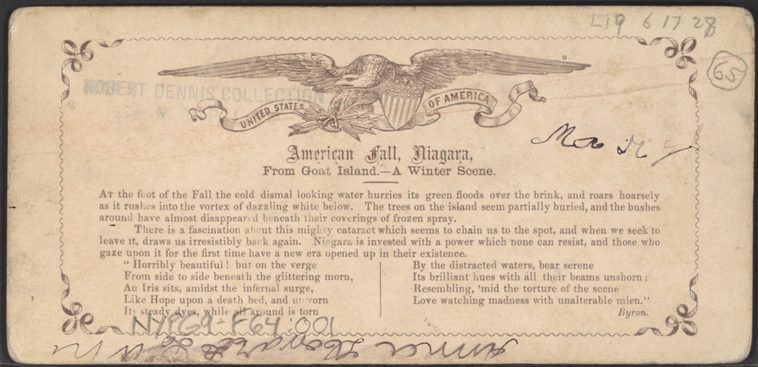 L19 6 17 28
65
ROBERT DENNIS COLLECTION
UNITED STATES OF AMERICA
American Fall, Niagara,
From Goat Island.—A Winter Scene.
AT the foot of the Fall the cold dismal looking water hurries its green floods over the brink, and roars hoarsely
as it rushes into the vortex of dazzling white below. The trees on the island seem partially buried, and the bushes
around have almost disappeared beneath their coverings of frozen spray.
There is a fascination about this mighty cataract which seems to chain us to the spot, and when we seek to
leave it, draws us irresistibly back again. Niagara is invested with a power which none can resist, and those who
gaze upon it for the first time have a new era opened up in their existence.
"Horribly beautiful! but on the verge
From side to side beneath the glittering morn,
An Iris sits, amidst the infernal surge,
Like Hope upon a death bed, and unworn
Its steady dyes, while all around is torn
By the distracted waters, bear serene
Its brilliant hues with all their beams unshorn;
Resembling, 'mid the torture of the scene
Love watching madness with unalterable mien."
Byron.
NYPG9-F64:001